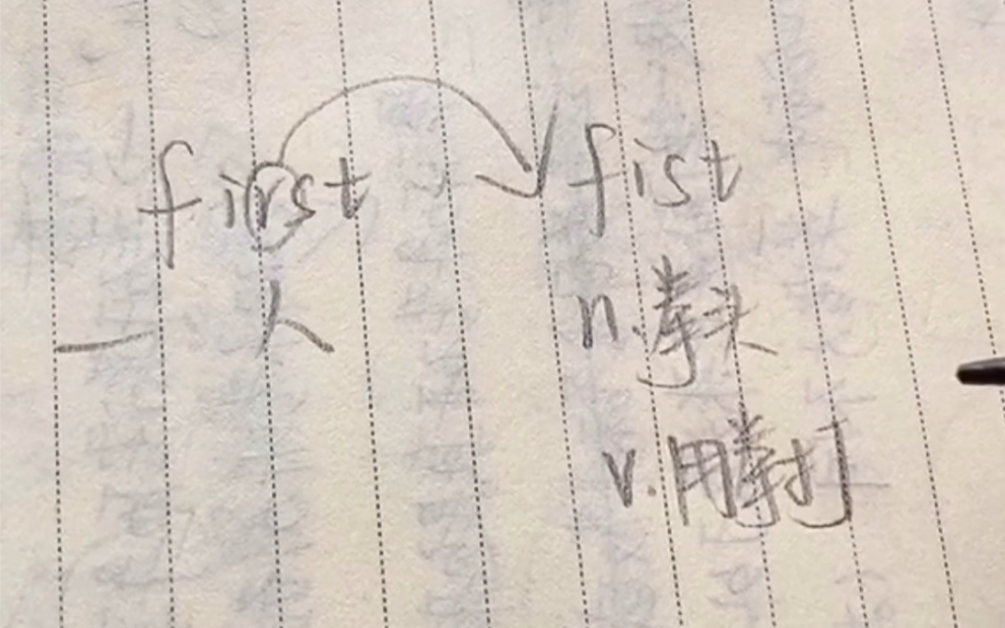 first fist
一 人 n.拳头
v.用拳打